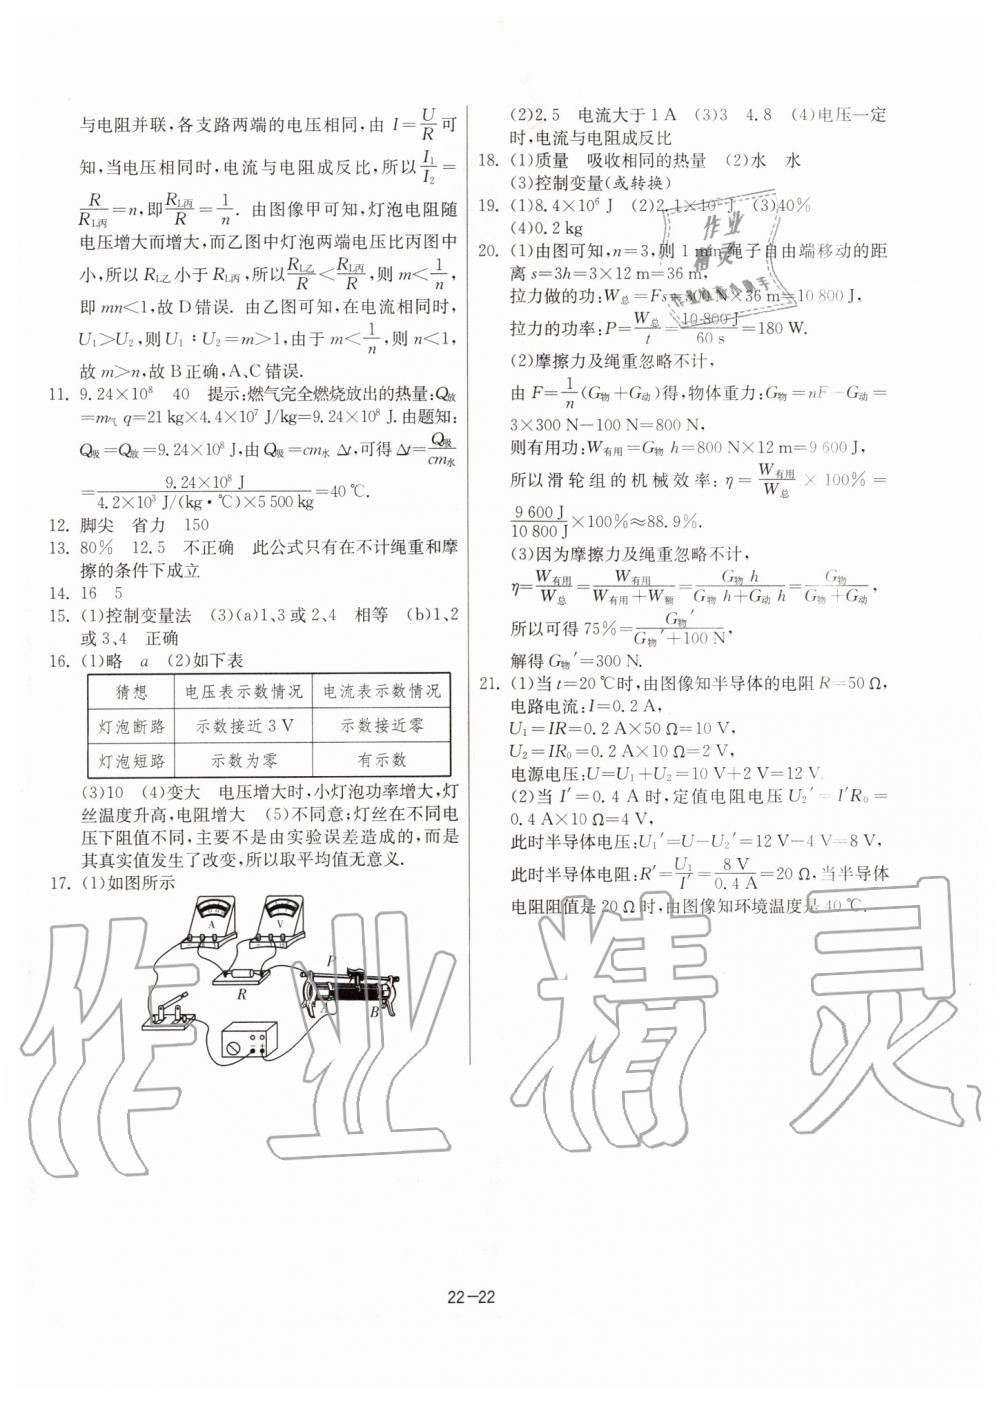 与电阻并联,各支路两端的电压相同,由 I=U/R 可
知,当电压相同时,电流与电阻成反比,所以 I₁/I₂=
R/R_L丙=n,即 R_L丙/R=1/n. 由图像甲可知,灯泡电阻随
电压增大而增大,而乙图中灯泡两端电压比丙图中
小,所以 R_L乙 小于 R_L丙,所以 R_L乙/R<R_L丙/R,则 m<1/n,
即 mn<1,故 D 错误. 由乙图可知,在电流相同时,
U₁>U₂,则 U₁∶U₂=m>1,由于 m<1/n,则 n<1,
故 m>n,故 B 正确,A、C 错误.
11. 9.24×10⁸ 40 提示:燃气完全燃烧放出的热量:Q放
=m气 q=21 kg×4.4×10⁷ J/kg=9.24×10⁸ J. 由题知:
Q吸=Q放=9.24×10⁸ J,由 Q吸=cm水 Δt,可得 Δt=Q吸/cm水
=9.24×10⁸ J/4.2×10³ J/(kg·℃)×5 500 kg=40 ℃.
12. 脚尖 省力 150
13. 80% 12.5 不正确 此公式只有在不计绳重和摩
擦的条件下成立
14. 16 5
15. (1)控制变量法 (3)(a)1、3 或 2、4 相等 (b)1、2
或 3、4 正确
16. (1)略 a (2)如下表
猜想 电压表示数情况 电流表示数情况
灯泡断路 示数接近 3 V 示数接近零
灯泡短路 示数为零 有示数
(3)10 (4)变大 电压增大时,小灯泡功率增大,灯
丝温度升高,电阻增大 (5)不同意;灯丝在不同电
压下阻值不同,主要不是由实验误差造成的,而是
其真实值发生了改变,所以取平均值无意义.
17. (1)如图所示
A V
P
R
A B
− +
(2)2.5 电流大于 1 A (3)3 4.8 (4)电压一定
时,电流与电阻成反比
18. (1)质量 吸收相同的热量 (2)水 水
(3)控制变量(或转换)
19. (1)8.4×10⁶ J (2)2.1×10⁷ J (3)40%
(4)0.2 kg
20. (1)由图可知,n=3,则 1 min 绳子自由端移动的距
离 s=3h=3×12 m=36 m,
拉力做的功:W总=Fs=300 N×36 m=10 800 J,
拉力的功率:P=W总/t=10 800 J/60 s=180 W.
(2)摩擦力及绳重忽略不计,
由 F=1/n(G物+G动)得,物体重力:G物=nF−G动=
3×300 N−100 N=800 N,
则有用功:W有用=G物 h=800 N×12 m=9 600 J,
所以滑轮组的机械效率:η=W有用/W总×100%=
9 600 J/10 800 J×100%≈88.9%.
(3)因为摩擦力及绳重忽略不计,
η=W有用/W总=W有用/W有用+W额=G物 h/G物 h+G动 h=G物/G物+G动,
所以可得 75%=G物′/G物′+100 N,
解得 G物′=300 N.
21. (1)当 t=20 ℃时,由图像知半导体的电阻 R=50 Ω,
电路电流:I=0.2 A,
U₁=IR=0.2 A×50 Ω=10 V,
U₂=IR₀=0.2 A×10 Ω=2 V,
电源电压:U=U₁+U₂=10 V+2 V=12 V.
(2)当 I′=0.4 A 时,定值电阻电压 U₂′=I′R₀=
0.4 A×10 Ω=4 V,
此时半导体电压:U₁′=U−U₂′=12 V−4 V=8 V,
此时半导体电阻:R′=U₁/I′=8 V/0.4 A=20 Ω,当半导体
电阻阻值是 20 Ω 时,由图像知环境温度是 40 ℃.
作业
精灵
作业精灵
22−22